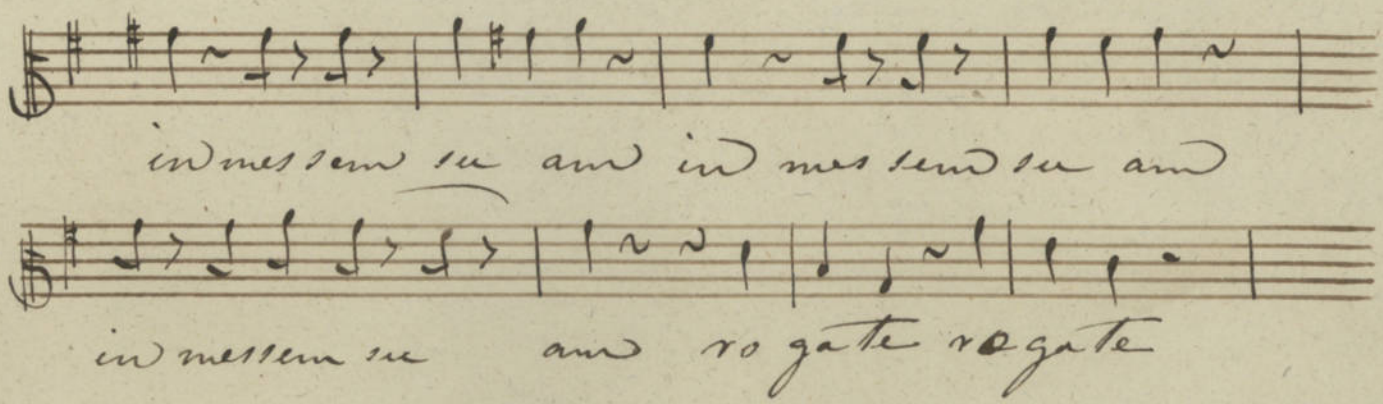 in messem su am in messem su am
in messem su am ro gate rogate